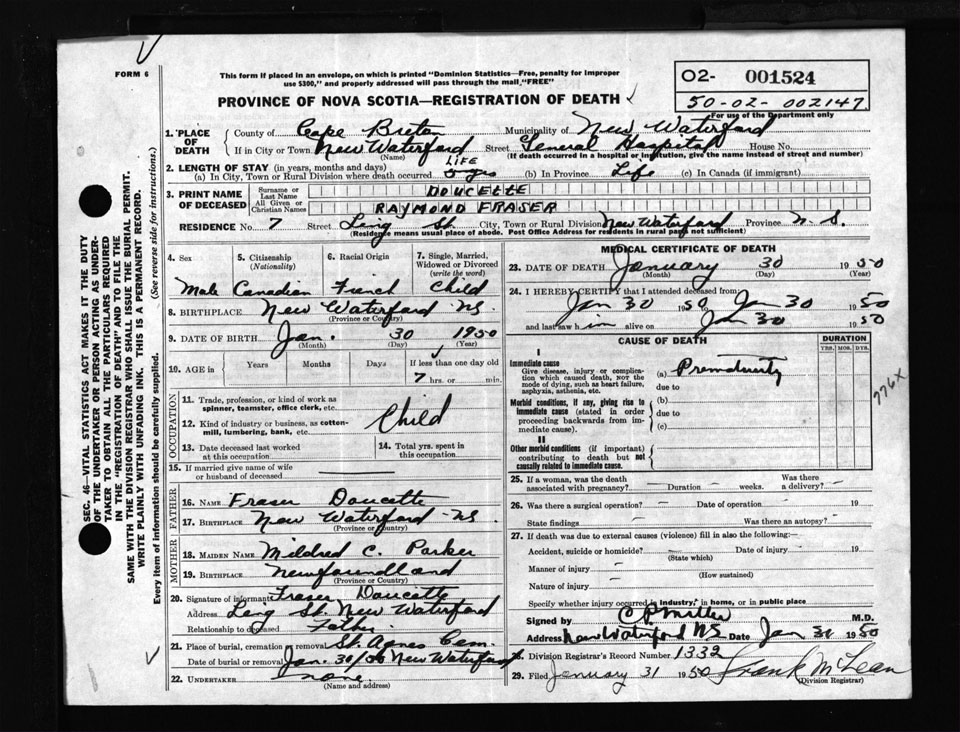 FORM 6
This form if placed in an envelope, on which is printed "Dominion Statistics—Free, penalty for improper
use $300," and properly addressed will pass through the mail "FREE"
PROVINCE OF NOVA SCOTIA—REGISTRATION OF DEATH
O2- 001524
50-02-002147
For use of the Department only
1. PLACE OF DEATH
County of Cape Breton Municipality of New Waterford
If in City or Town New Waterford Street General Hospital House No.
(Name) (If death occurred in a hospital or institution, give the name instead of street and number)
2. LENGTH OF STAY (in years, months and days)
LIFE
(a) In City, Town or Rural Division where death occurred (b) In Province Life (c) In Canada (if immigrant)
3. PRINT NAME OF DECEASED
Surname or Last Name DOUCETTE
All Given or Christian Names RAYMOND FRASER
RESIDENCE No. 7 Street Ling St. City, Town or Rural Division New Waterford Province N. S.
(Residence means usual place of abode. Post Office Address for residents in rural parts not sufficient)
4. Sex 5. Citizenship (Nationality) 6. Racial Origin 7. Single, Married, Widowed or Divorced (write the word)
Male Canadian French Child
8. BIRTHPLACE New Waterford NS.
(Province or Country)
9. DATE OF BIRTH Jan. 30 1950
(Month) (Day) (Year)
10. AGE in Years Months Days If less than one day old
7 hrs. or min.
OCCUPATION
11. Trade, profession, or kind of work as
spinner, teamster, office clerk, etc.
12. Kind of industry or business, as cotton-
mill, lumbering, bank, etc.
Child
13. Date deceased last worked
at this occupation
14. Total yrs. spent in
this occupation
15. If married give name of wife
or husband of deceased
FATHER
16. NAME Fraser Doucette
17. BIRTHPLACE New Waterford NS
(Province or Country)
MOTHER
18. MAIDEN NAME Mildred C. Parker
19. BIRTHPLACE Newfoundland
(Province or Country)
20. Signature of informant Fraser Doucette
Address Ling St. New Waterford
Relationship to deceased Father
21. Place of burial, cremation or removal St. Agnes Cem.
Date of burial or removal Jan. 30/50 New Waterford
22. UNDERTAKER none.
(Name and address)
MEDICAL CERTIFICATE OF DEATH
23. DATE OF DEATH January 30 1950
(Month) (Day) (Year)
24. I HEREBY CERTIFY that I attended deceased from:
Jan 30 1950 to Jan 30 1950
and last saw him alive on Jan 30 1950
CAUSE OF DEATH
DURATION
YRS. MOS. DYS.
I
Immediate cause
Give disease, injury or complica-
tion which caused death, not the
mode of dying, such as heart failure,
asphyxia, asthenia, etc.
(a) Prematurity
due to
Morbid conditions, if any, giving rise to
immediate cause (stated in order
proceeding backwards from im-
mediate cause).
(b)
due to
(c)
II
Other morbid conditions (if important)
contributing to death but not
causally related to immediate cause.
776X
25. If a woman, was the death
associated with pregnancy? Duration weeks. Was there a delivery?
26. Was there a surgical operation? Date of operation 19
State findings Was there an autopsy?
27. If death was due to external causes (violence) fill in also the following:
Accident, suicide or homicide? Date of injury 19
(State which)
Manner of injury
(How sustained)
Nature of injury
Specify whether injury occurred in industry, in home, or in public place
Signed by C P Miller M.D.
Address New Waterford NS Date Jan 30 1950
28. Division Registrar's Record Number 1332
29. Filed January 31 1950 Frank McLean
(Division Registrar)
SEC. 46—VITAL STATISTICS ACT MAKES IT THE DUTY
OF THE UNDERTAKER OR PERSON ACTING AS UNDER-
TAKER TO OBTAIN ALL THE PARTICULARS REQUIRED
IN THE "REGISTRATION OF DEATH" AND TO FILE THE
SAME WITH THE DIVISION REGISTRAR WHO SHALL ISSUE THE BURIAL PERMIT.
WRITE PLAINLY WITH UNFADING INK. THIS IS A PERMANENT RECORD.
Every item of information should be carefully supplied. (See reverse side for instructions.)